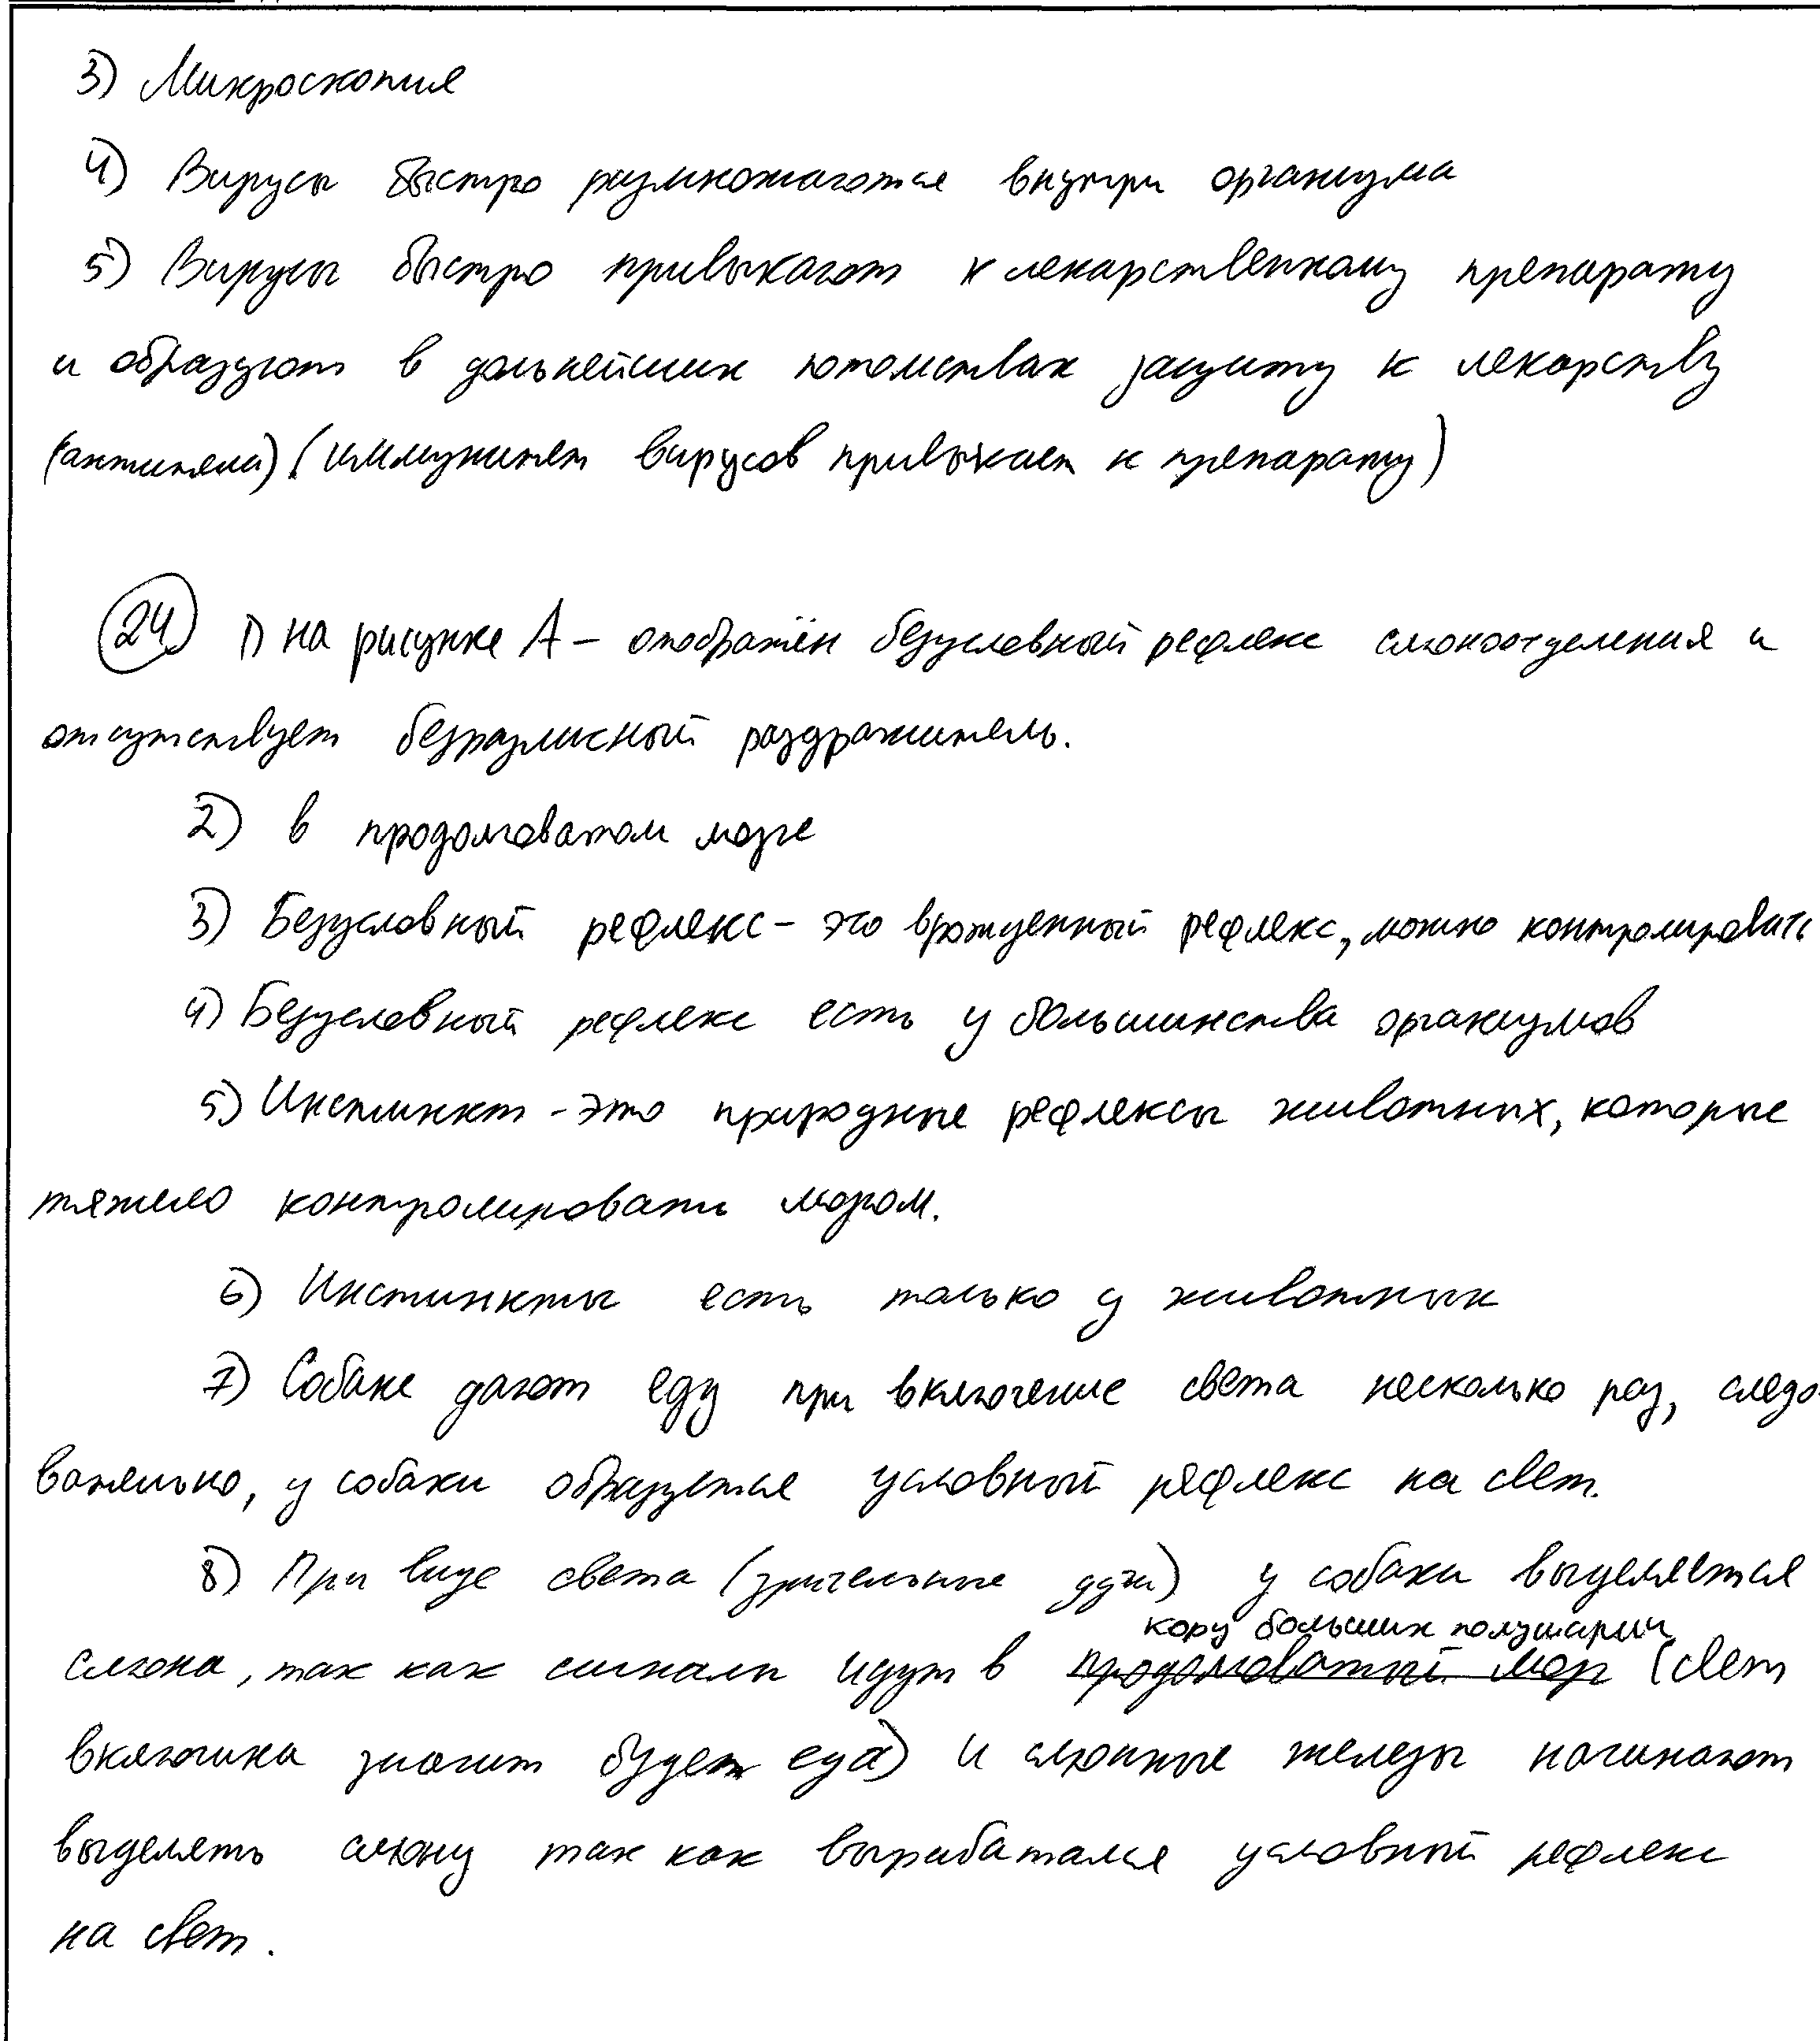 3) Микроскопия
4) Вирусы быстро размножаются внутри организма
5) Вирусы быстро привыкают к лекарственному препарату
и образуют в дальнейших потомствах защиту к лекарству
(антитела) (иммунитет вирусов привыкает к препарату)
24 1) на рисунке А – отображён безусловный рефлекс слюноотделения и
отсутствует безразличный раздражитель.
2) в продолговатом мозге
3) Безусловный рефлекс – это врожденный рефлекс, можно контролировать
4) Безусловный рефлекс есть у большинства организмов
5) Инстинкт - это природные рефлексы животных, которые
тяжело контролировать мозгом.
6) Инстинкты есть только у животных
7) Собаке дают еду при включение света несколько раз, следо-
вательно, у собаки образуется условный рефлекс на свет.
8) При виде света (зрительные дуги) у собаки выделяется
кору больших полушарий
слюна, так как сигналы идут в продолговатый мозг (свет
включили значит будет еда) и слюнные железы начинают
выделять слюну так как выработался условный рефлекс
на свет.